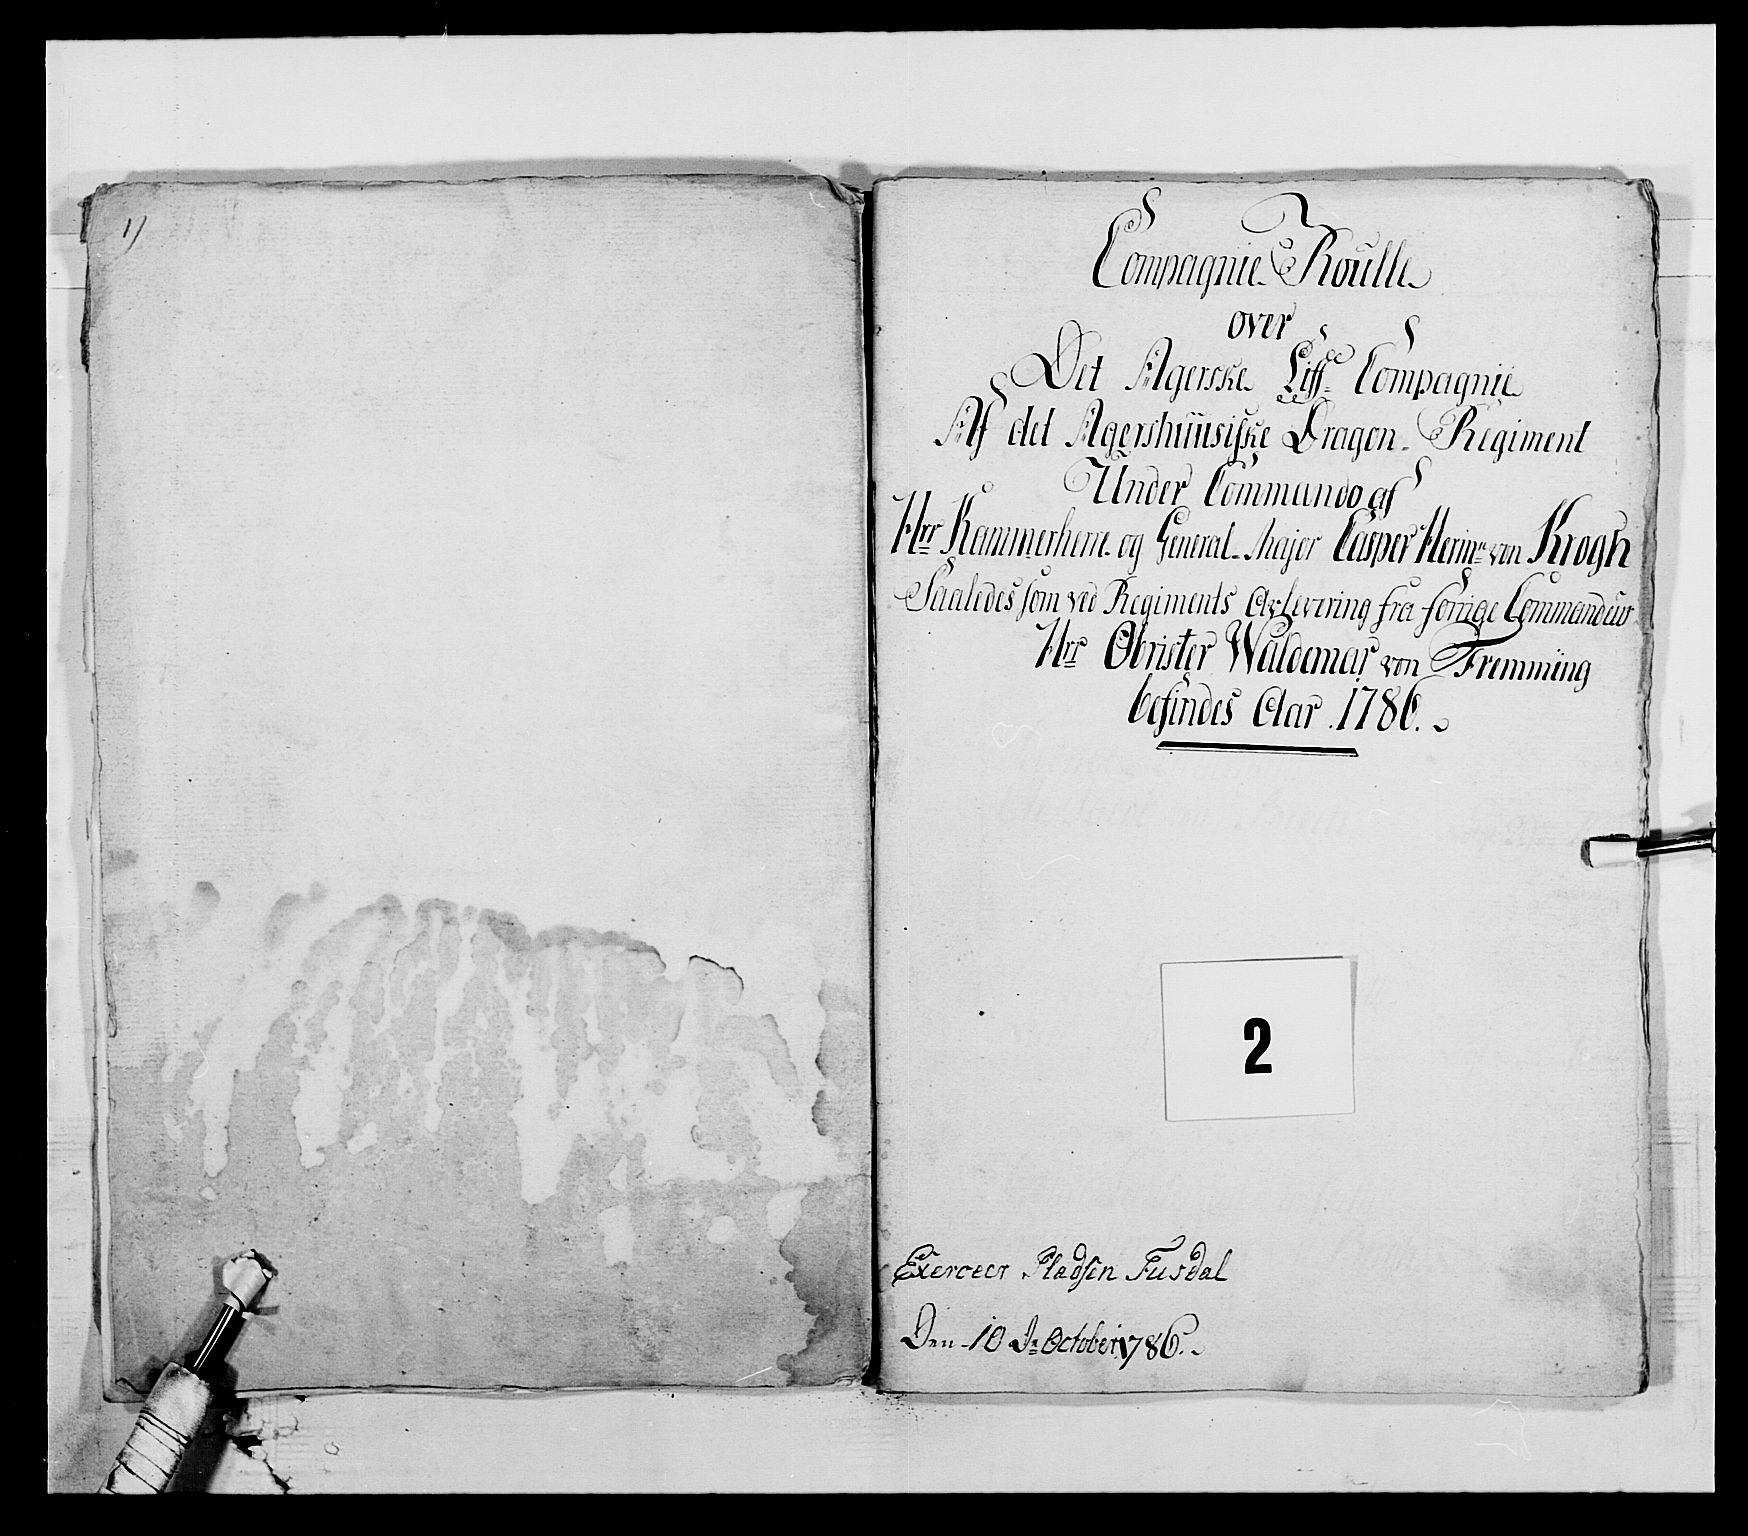 1)
Compagnie Roulle
over
Det Agerske Liff Compagnie
Af det Agershuusiske Dragon Regiment
Under Commando af
Hrr Kammerherre og General-Major Casper Herm: von Krogh
Saaledes som ved Regiments Avlevering fra forrige Commandeur
Hrr Obrister Waldemar von Fremming
befindes Aar 1786.
2
Exerceer Pladsen Fusdal
Den 10 de October 1786.